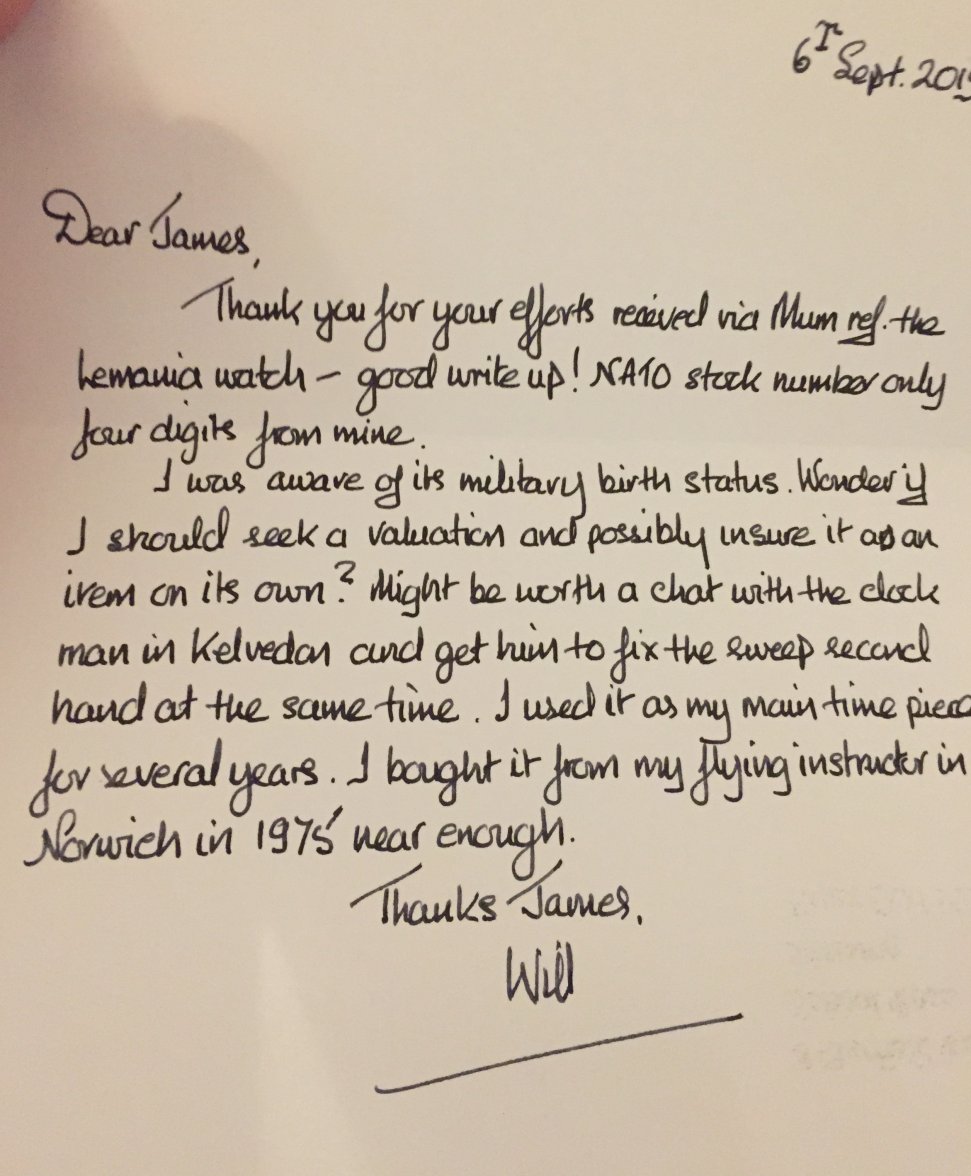 6th Sept. 201
Dear James,
Thank you for your efforts received via Mum ref. the
Lemania watch – good write up! NATO stock number only
four digits from mine.
I was aware of its military birth status. Wonder if
I should seek a valuation and possibly insure it as an
item on its own? Might be worth a chat with the clock
man in Kelvedon and get him to fix the sweep second
hand at the same time. I used it as my main time piece
for several years. I bought it from my flying instructor in
Norwich in 1975 near enough.
Thanks James,
Will